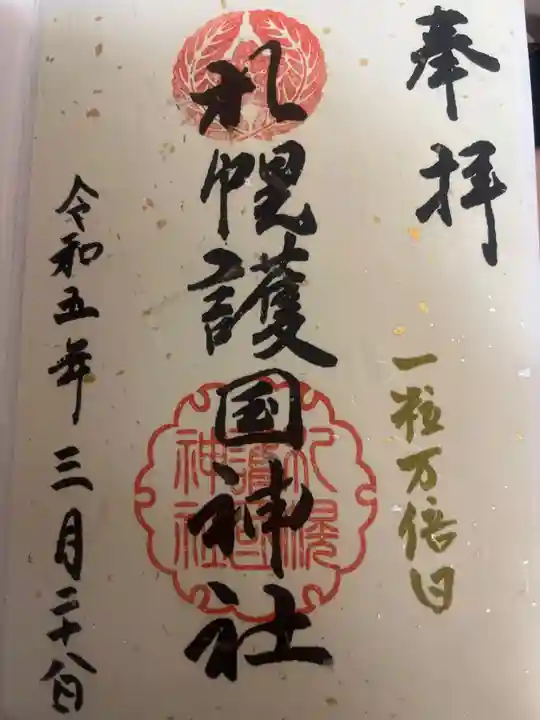 奉拝
一粒万倍日
札幌護国神社
札幌
護国
神社
令和五年三月二十八日